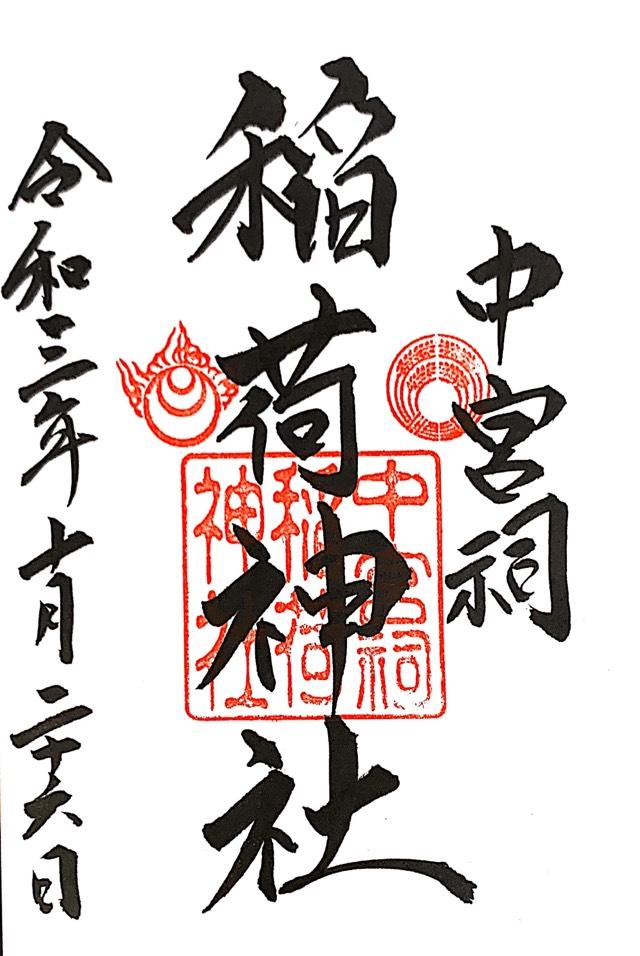 中宮祠
稲荷神社
中宮祠
稲荷
神社
令和三年十月二十六日